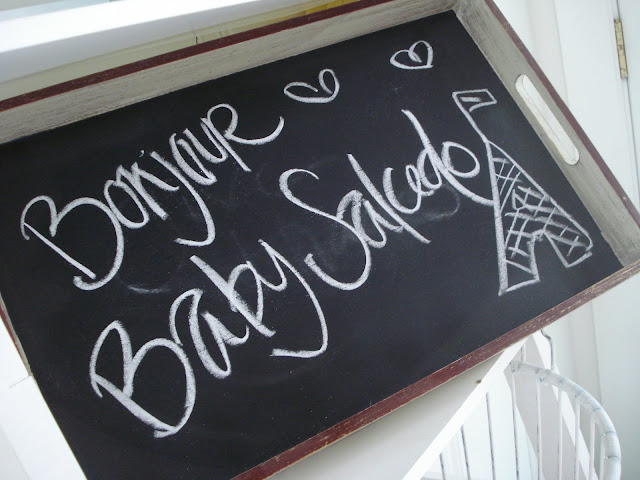 Bonjour
Baby Salcedo